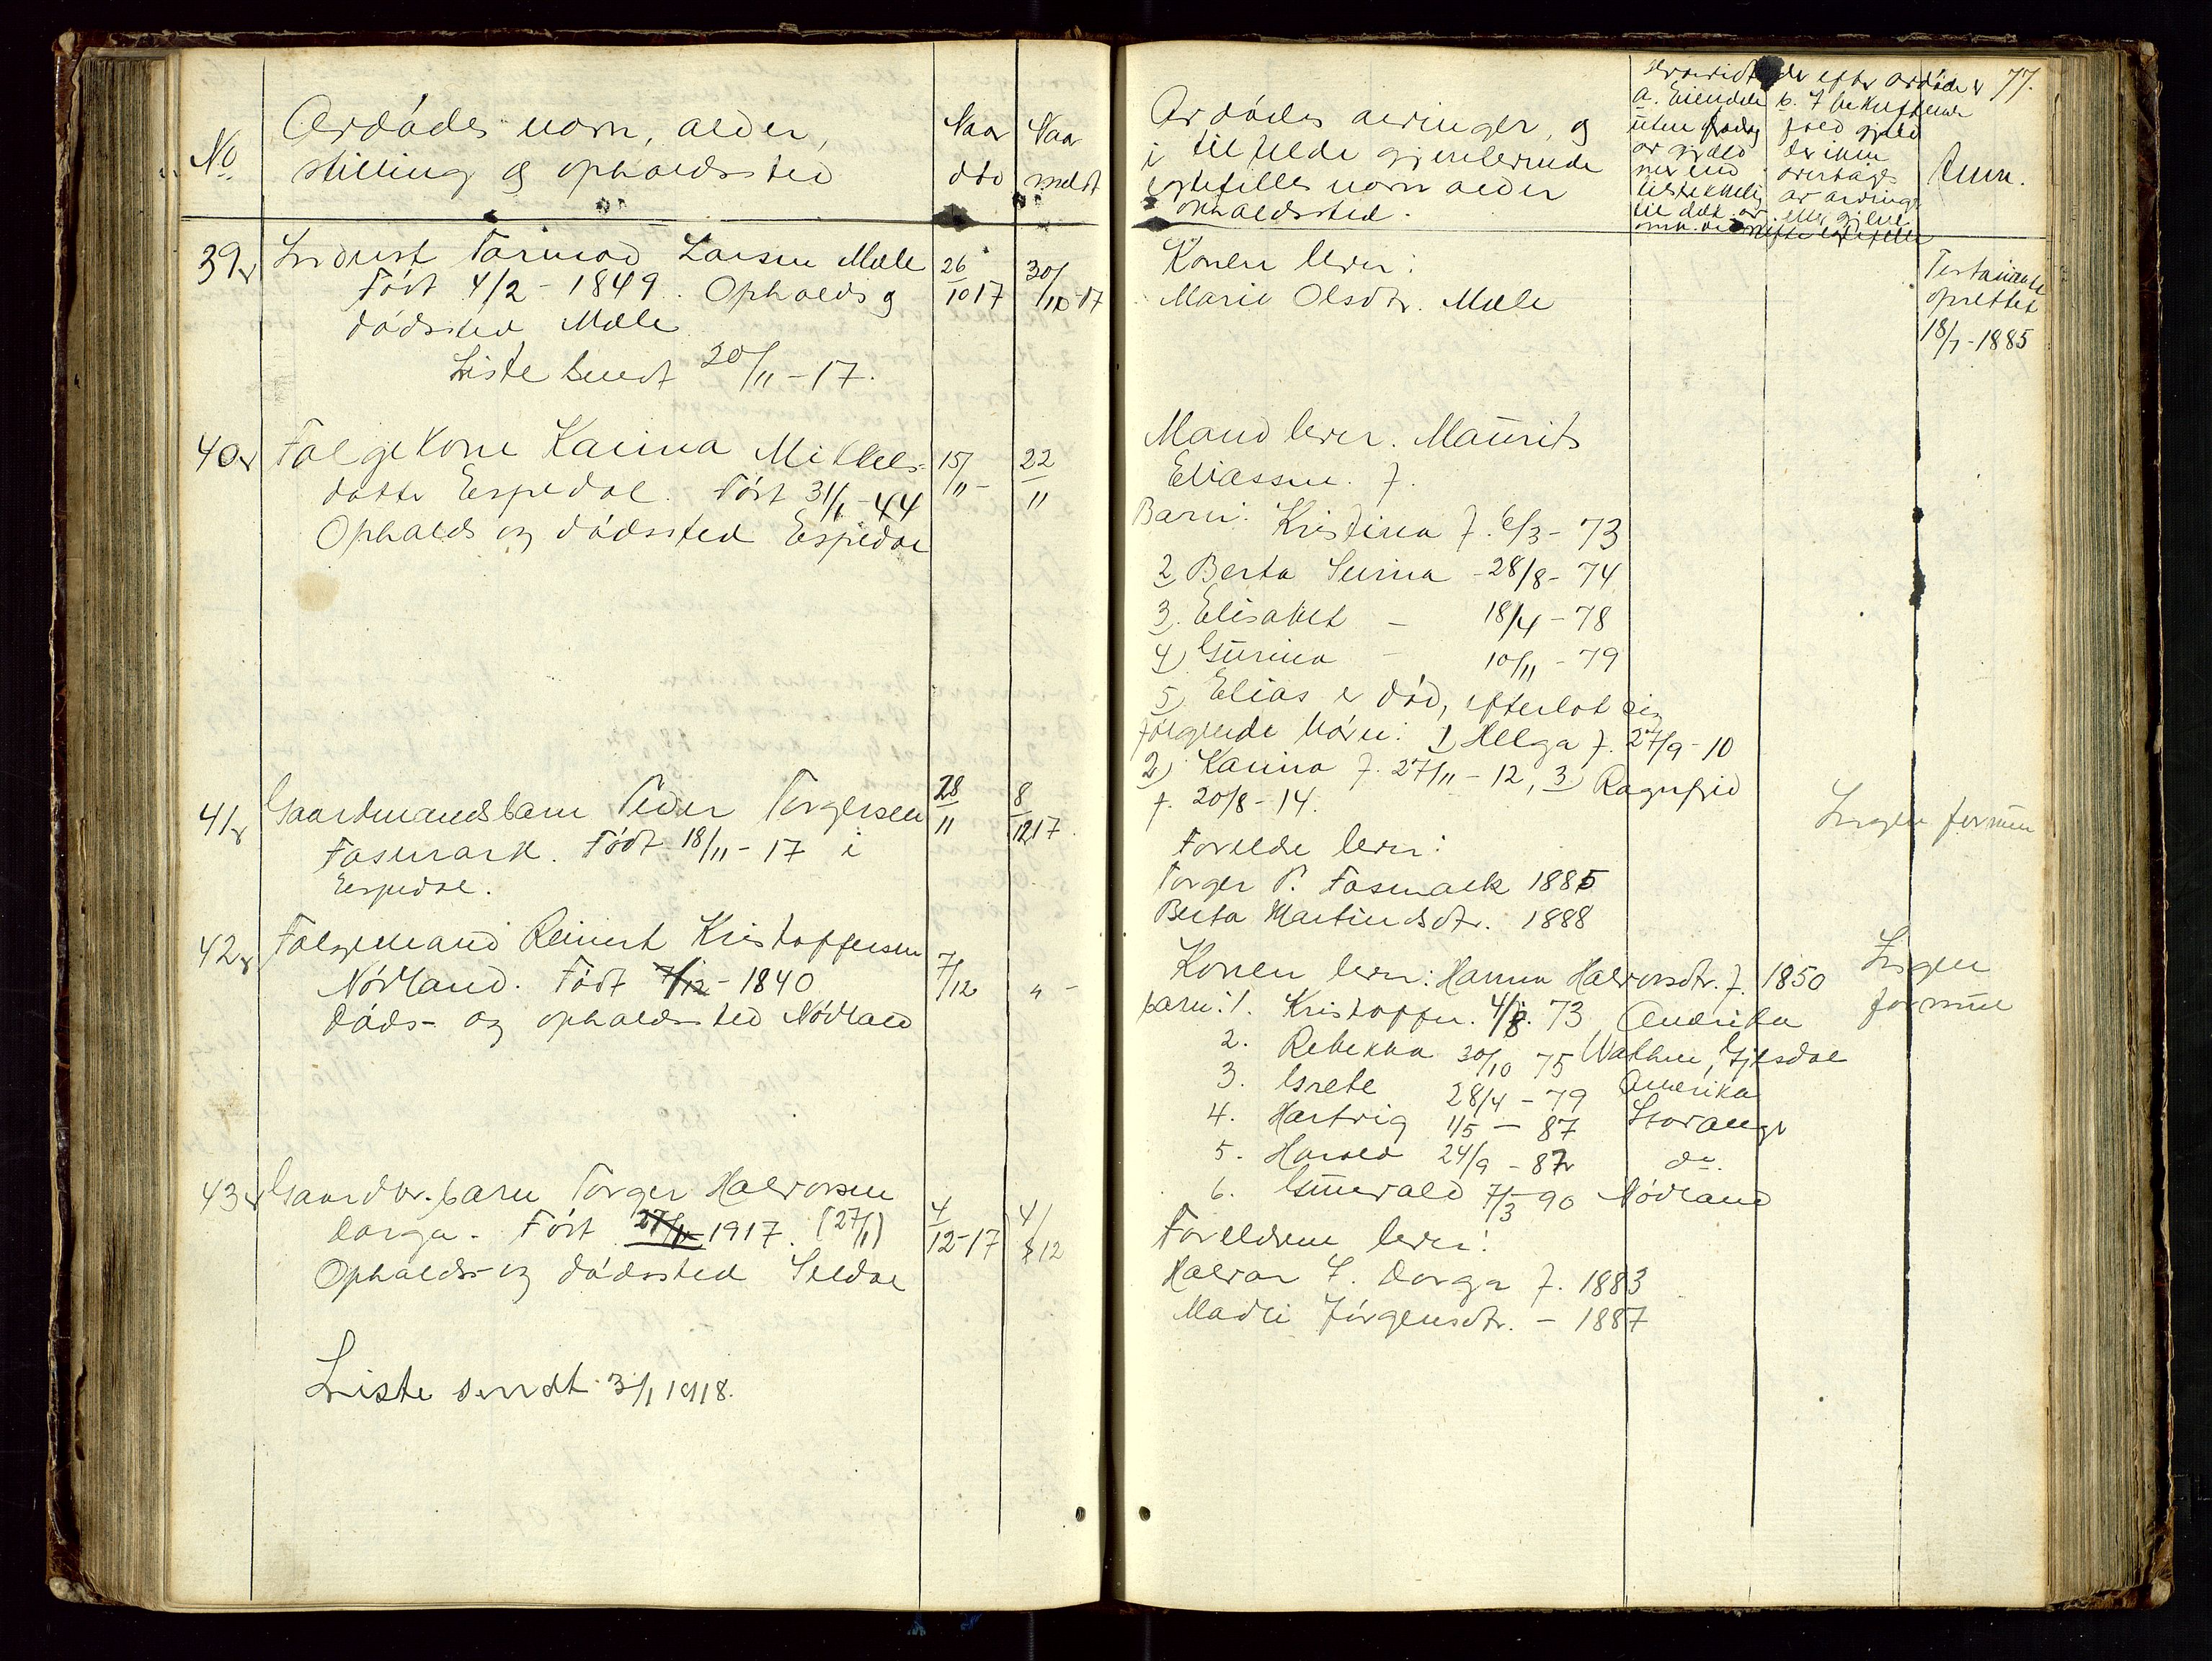 No
Avdødes navn, alder,
stilling og opholdssted
Naar
død
Naar
meldt
39
Inderst Tarmod Larsen Mæle
Født 4/2 - 1849. Opholds og
dødssted Mæle
Liste sendt 20/11 - 17.
26/10 17
30/10 - 17
40
Følgekone Karina Mikkels-
datter Espedal. Født 31/1 - 44
Opholds og dødssted Espedal
15/11 -
22/11
41
Gaardmandsbarn Peder Torgersen
Fosmark. Født 18/11 - 17 i
Espedal.
28/11
8/12 17.
42
Følgemand Reinert Kristoffersen
Nödland. Født 7/12 - 1840
døds- og opholdssted Nödland
7/12
" -
43
Gaardbr. barn Torger Halvorsen
Dorga - Født 27/11 1917. (27/1)
Opholds- og dødssted Seldal
4/12 - 17
4/12
Liste sendt 3/1 1918.
77.
Avdødes arvinger, og
i tilfelde gjenlevende
egtefelles navn alder
opholdssted.
efter avdøde
a. Eiendele
uten fradrag
av gjæld
mer end
tilstrekkelig
b.
gjeld
der ikke
overtages
av arvinger
Anm.
Konen lever:
Marie Olsdtr. Mæle
Testamente
oprettet
18/7 - 1885
Mand lever. Maurits
Eliassen. f.
Barn: Kristina f. 6/3 - 73
2 Berta Serina - 28/8 - 74
3. Elisabet - 18/4 - 78
4) Gurina - 10/11 - 79
5) Elias er död, efterlot sig
følgende börn: 1) Helga f. 27/9 - 10
2) Karina f. 27/11 - 12, 3) Ragnfrid
f. 20/8 - 14.
Forelde lever:
Torger P. Fosmark 1885
Berta Martinsdtr. 1888
Ingen formue
Konen lever: Hanna Halvorsdtr. f. 1850
barn: 1. Kristoffer. 4/8. 73 Amerika
2. Rebekka 30/10 75 Wathne, Gjesdal
3. Grete 28/4 - 79 Amerika
4. Hartvig 1/5 - 87 Stavanger
5. Harald 24/9 - 87 do.
6. Gunvald 7/3 - 90 Nödland
Ingen
formue
Foreldrene lever:
Halvor T. Dorga f. 1883
Madli Jörgensdtr. - 1887